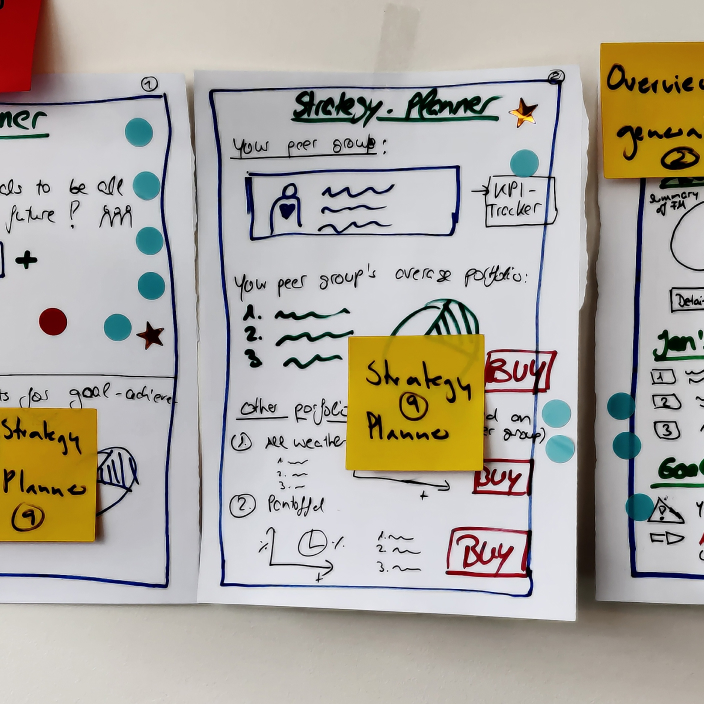 ①
ner
als to be all
future ?
+
ts for goal-achieve
Strategy
Planne
⑨
②
Strategy. Planner
Your peer group:
KPI-
Tracker
Your peer group's average portfolio:
1.
2.
3
BUY
Strategy
⑨
Planne
Other portfolio
d on
er group)
① All weather
1.
2.
3.
BUY
②. Pantoffel
%
%
1.
2.
3.
BUY
Overvie
genera
②
Summary
of FM
Detai
Jen's
1
2
3
Goal
!
Y